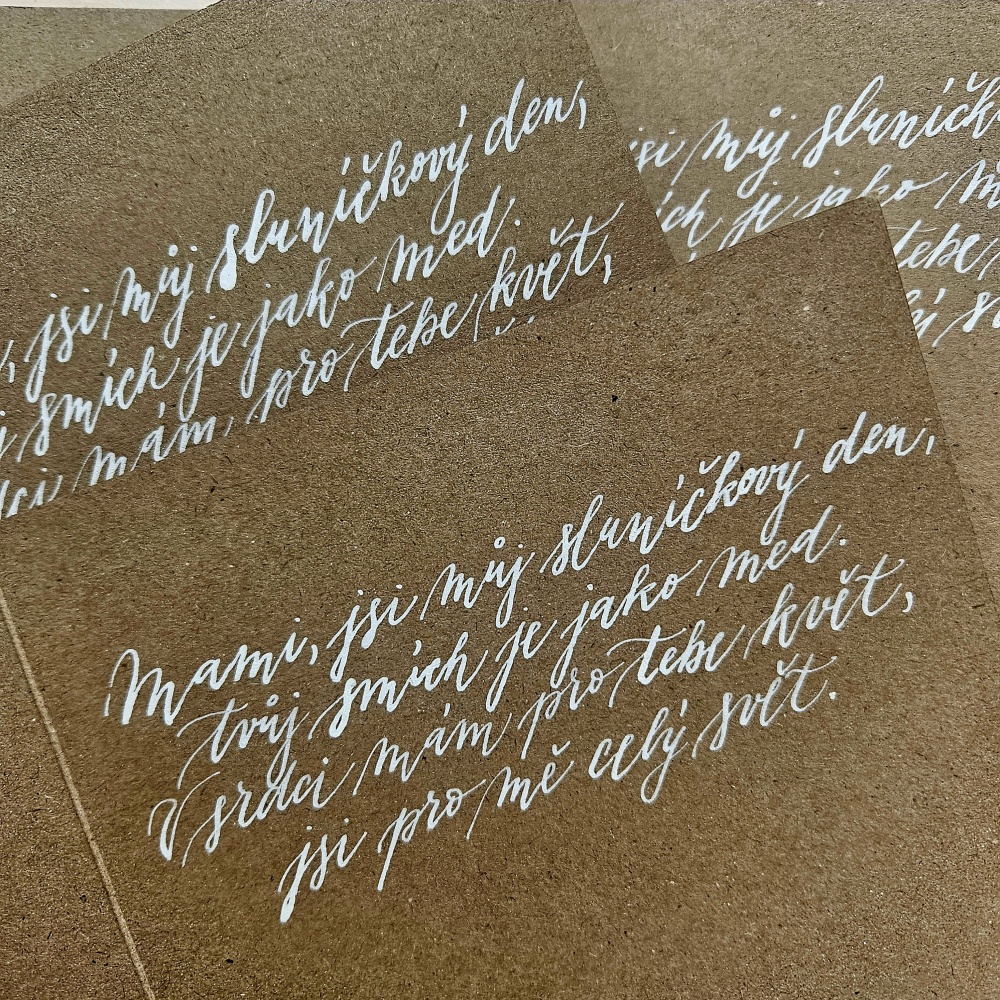 jsi můj sluníčkový den,
smích je jako med.
mám pro tebe květ,
jsi můj sluníčk
je jako
tebe
Mami, jsi můj sluníčkový den,
tvůj smích je jako med.
V srdci mám pro tebe květ,
jsi pro mě celý svět.